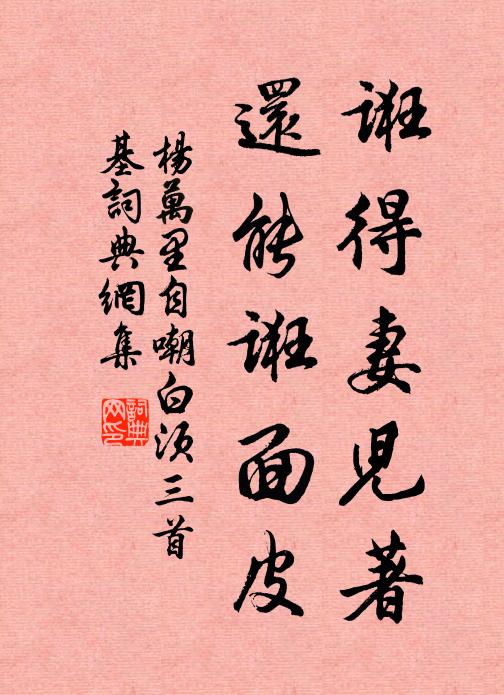 誑得妻兒著
還能誑面皮
楊萬里自嘲白須三首
基詞典網集
詞典
网印